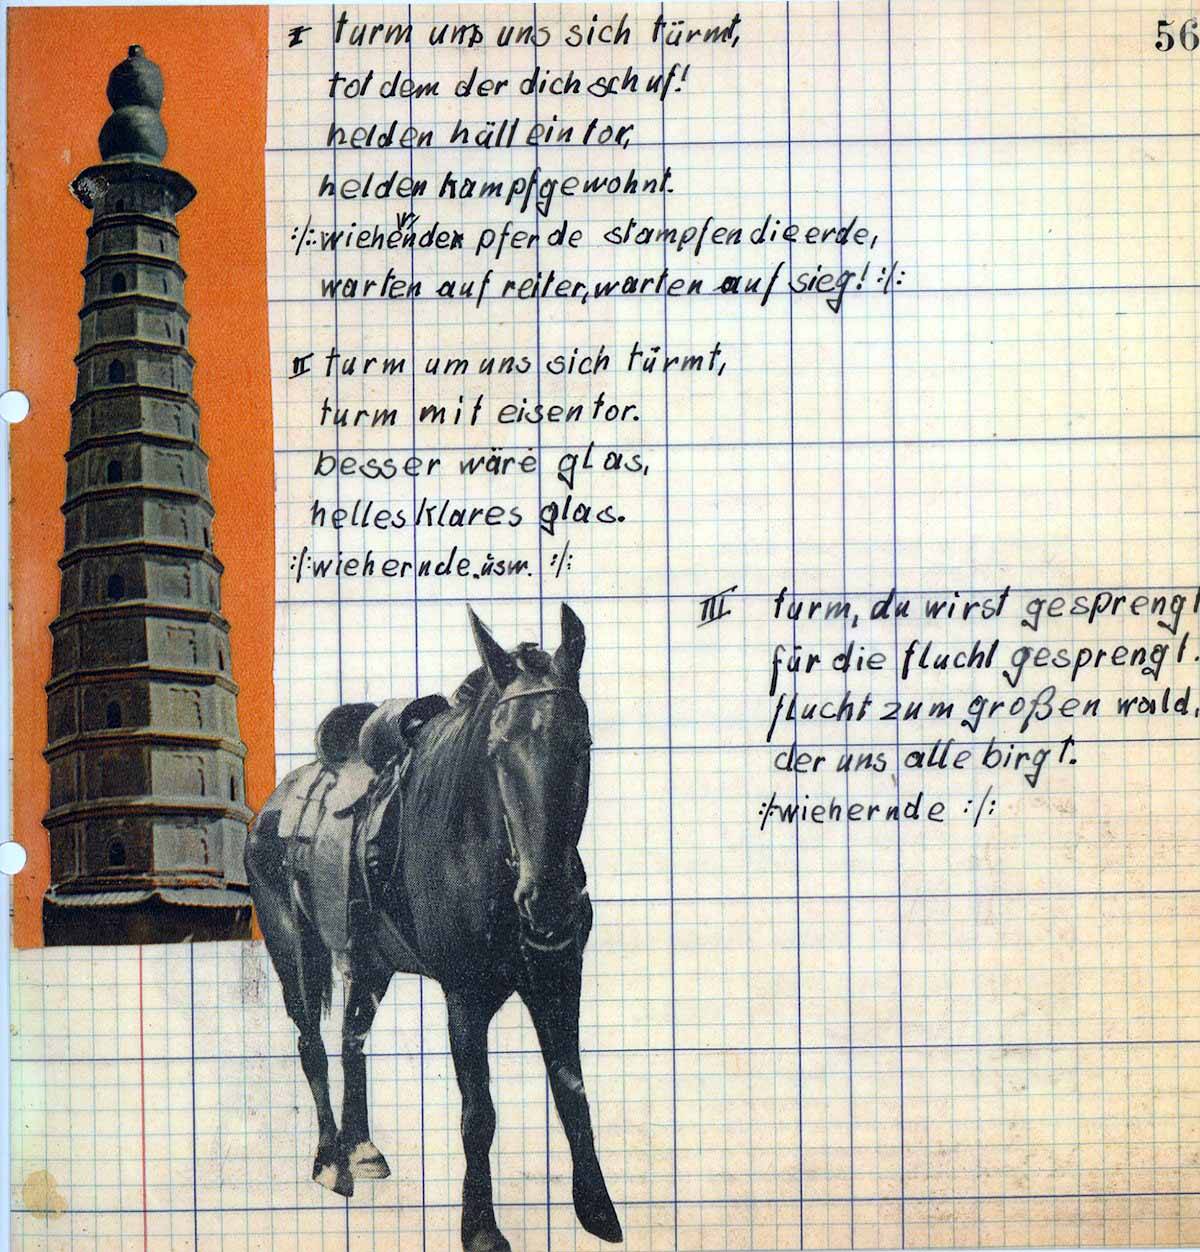 56
I turm um uns sich türmt,
tot dem der dich schuf!
helden hält ein tor,
helden kampfgewohnt.
:/: wiehernde pferde stampfen die erde,
warten auf reiter, warten auf sieg! :/:
II turm um uns sich türmt,
turm mit eisentor.
besser wäre glas,
helles klares glas.
:/: wiehernde.usw. :/:
III turm, du wirst gesprengt
für die flucht gesprengt.
flucht zum großen wald,
der uns alle birgt.
:/: wiehernde :/: